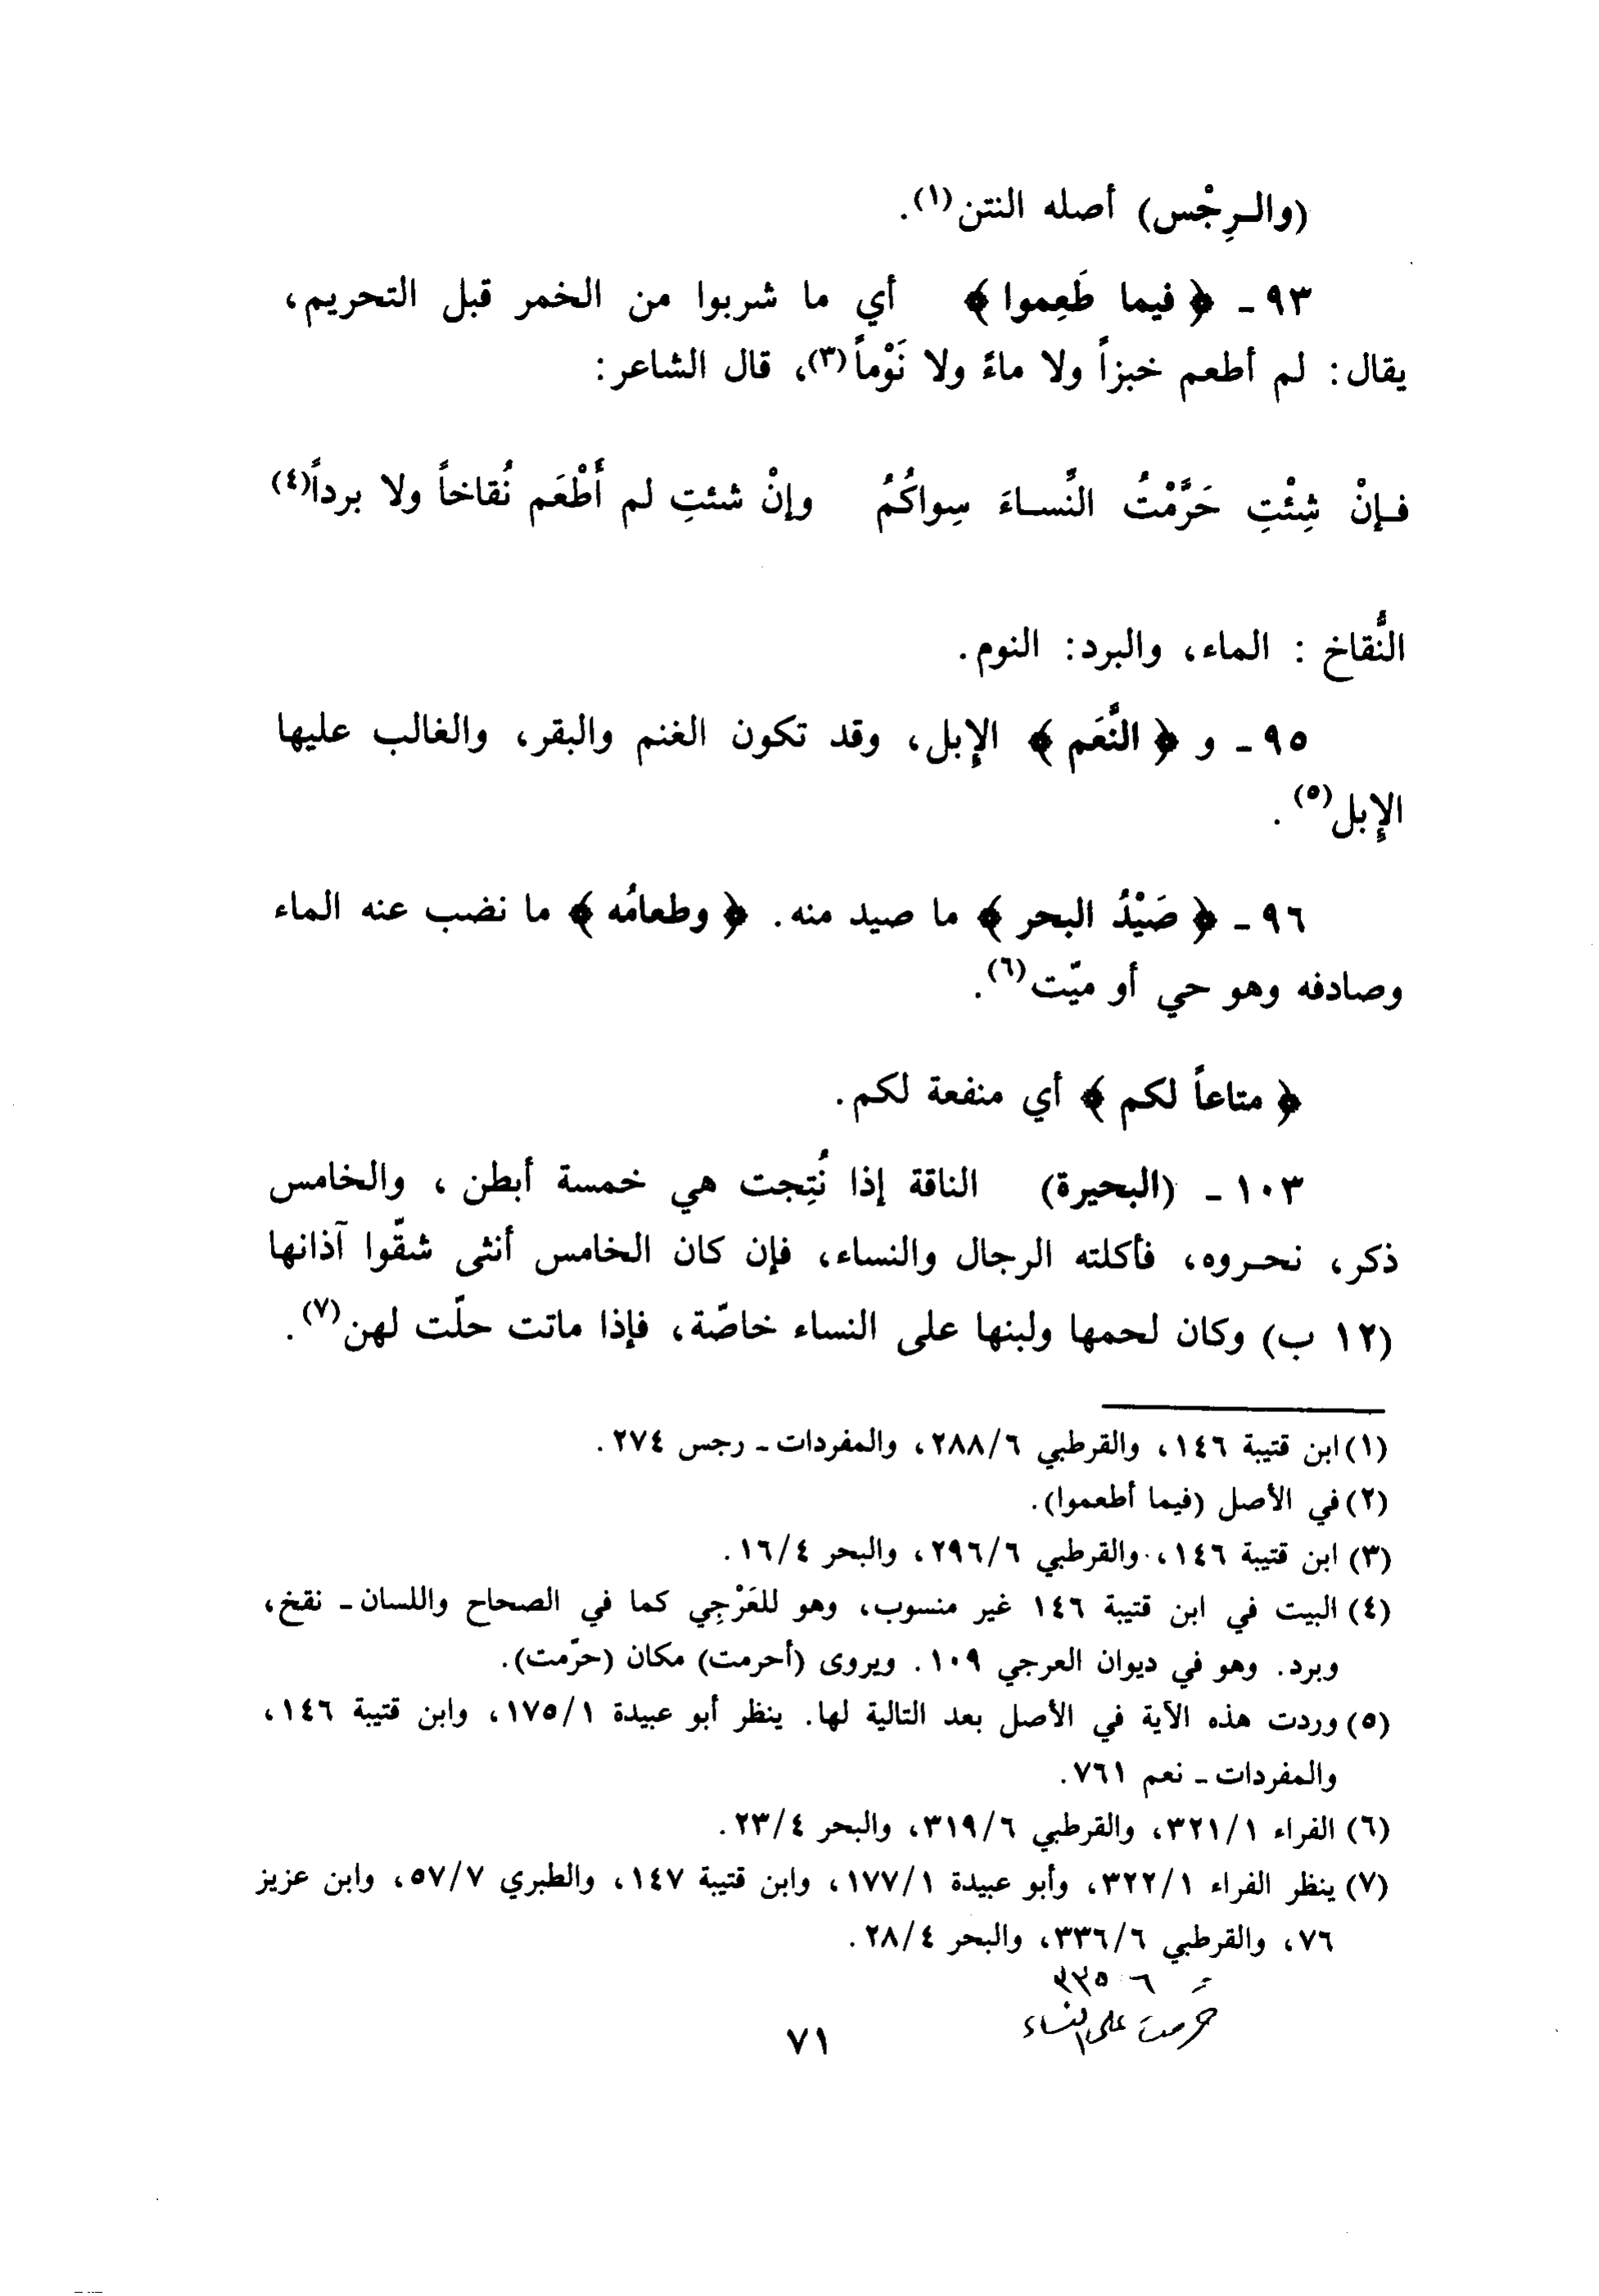 (والـرِجْس) أصله النتن(١).
٩٣ ـ ﴿ فيما طَعِموا ﴾ أي ما شربوا من الخمر قبل التحريم،
يقال: لم أطعم خبزاً ولا ماءً ولا نَوْماً(٣)، قال الشاعر:
فـإنْ شِئْتِ حَرَّمْتُ النِّسـاءَ سِواكُمُ وإنْ شئتِ لم أَطْعَم نُقاخاً ولا برداً(٤)
النُّقاخ : الماء، والبرد: النوم.
٩٥ ـ و ﴿ النَّعَم ﴾ الإبل، وقد تكون الغنم والبقر، والغالب عليها
الإبل(٥).
٩٦ ـ ﴿ صَيْدُ البحر ﴾ ما صيد منه. ﴿ وطعامُه ﴾ ما نضب عنه الماء
وصادفه وهو حي أو ميّت(٦).
﴿ متاعاً لكم ﴾ أي منفعة لكم.
١٠٣ ـ (البحيرة) الناقة إذا نُتِجت هي خمسة أبطن ، والخامس
ذكر، نحـروه، فأكلته الرجال والنساء، فإن كان الخامس أنثى شقّوا آذانها
(١٢ ب) وكان لحمها ولبنها على النساء خاصّة، فإذا ماتت حلّت لهن(٧).
(١) ابن قتيبة ١٤٦، والقرطبي ٢٨٨/٦، والمفردات ـ رجس ٢٧٤.
(٢) في الأصل (فيما أطعموا).
(٣) ابن قتيبة ١٤٦، والقرطبي ٢٩٦/٦، والبحر ١٦/٤.
(٤) البيت في ابن قتيبة ١٤٦ غير منسوب، وهو للعَرْجِي كما في الصحاح واللسان ـ نقخ،
وبرد. وهو في ديوان العرجي ١٠٩. ويروى (أحرمت) مكان (حرّمت).
(٥) وردت هذه الآية في الأصل بعد التالية لها. ينظر أبو عبيدة ١٧٥/١، وابن قتيبة ١٤٦،
والمفردات ـ نعم ٧٦١.
(٦) الفراء ٣٢١/١، والقرطبي ٣١٩/٦، والبحر ٢٣/٤.
(٧) ينظر الفراء ٣٢٢/١، وأبو عبيدة ١٧٧/١، وابن قتيبة ١٤٧، والطبري ٥٧/٧، وابن عزيز
٧٦، والقرطبي ٣٣٦/٦، والبحر ٢٨/٤.
حرمت على النساء
٧١